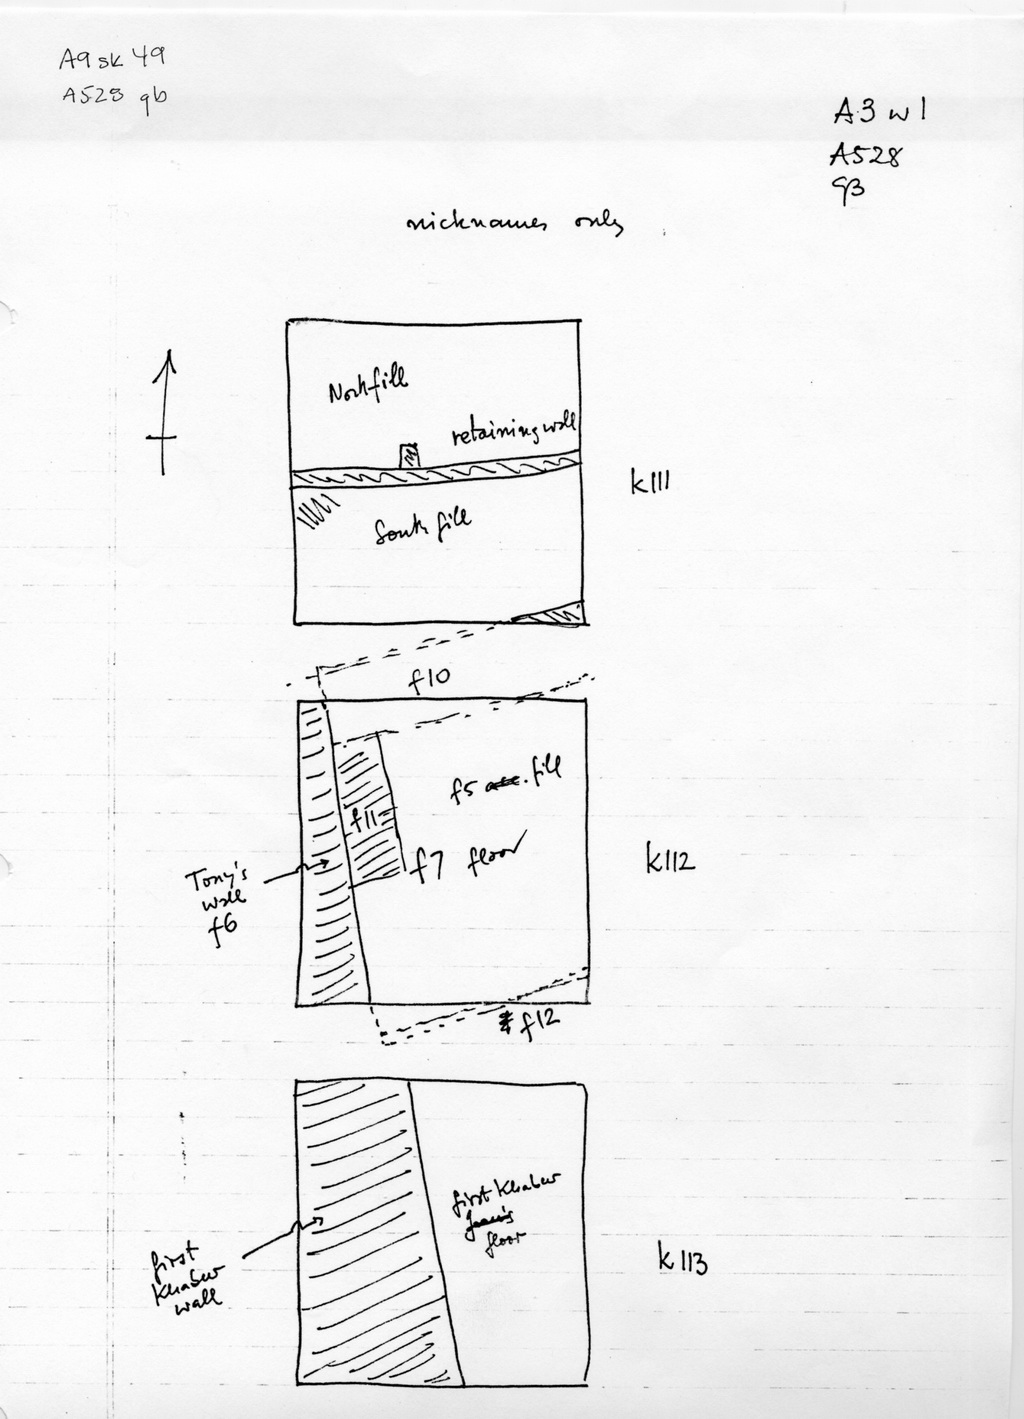 A9 sk 49
A528 qb
A3 w1
A528
qB
nicknames only
North fill
retaining wall
k111
South fill
f10
f5 fill
f11
f7 floor
k112
Tony's
wall
f6
f12
first Khabur
floor
k113
first
Khabur
wall